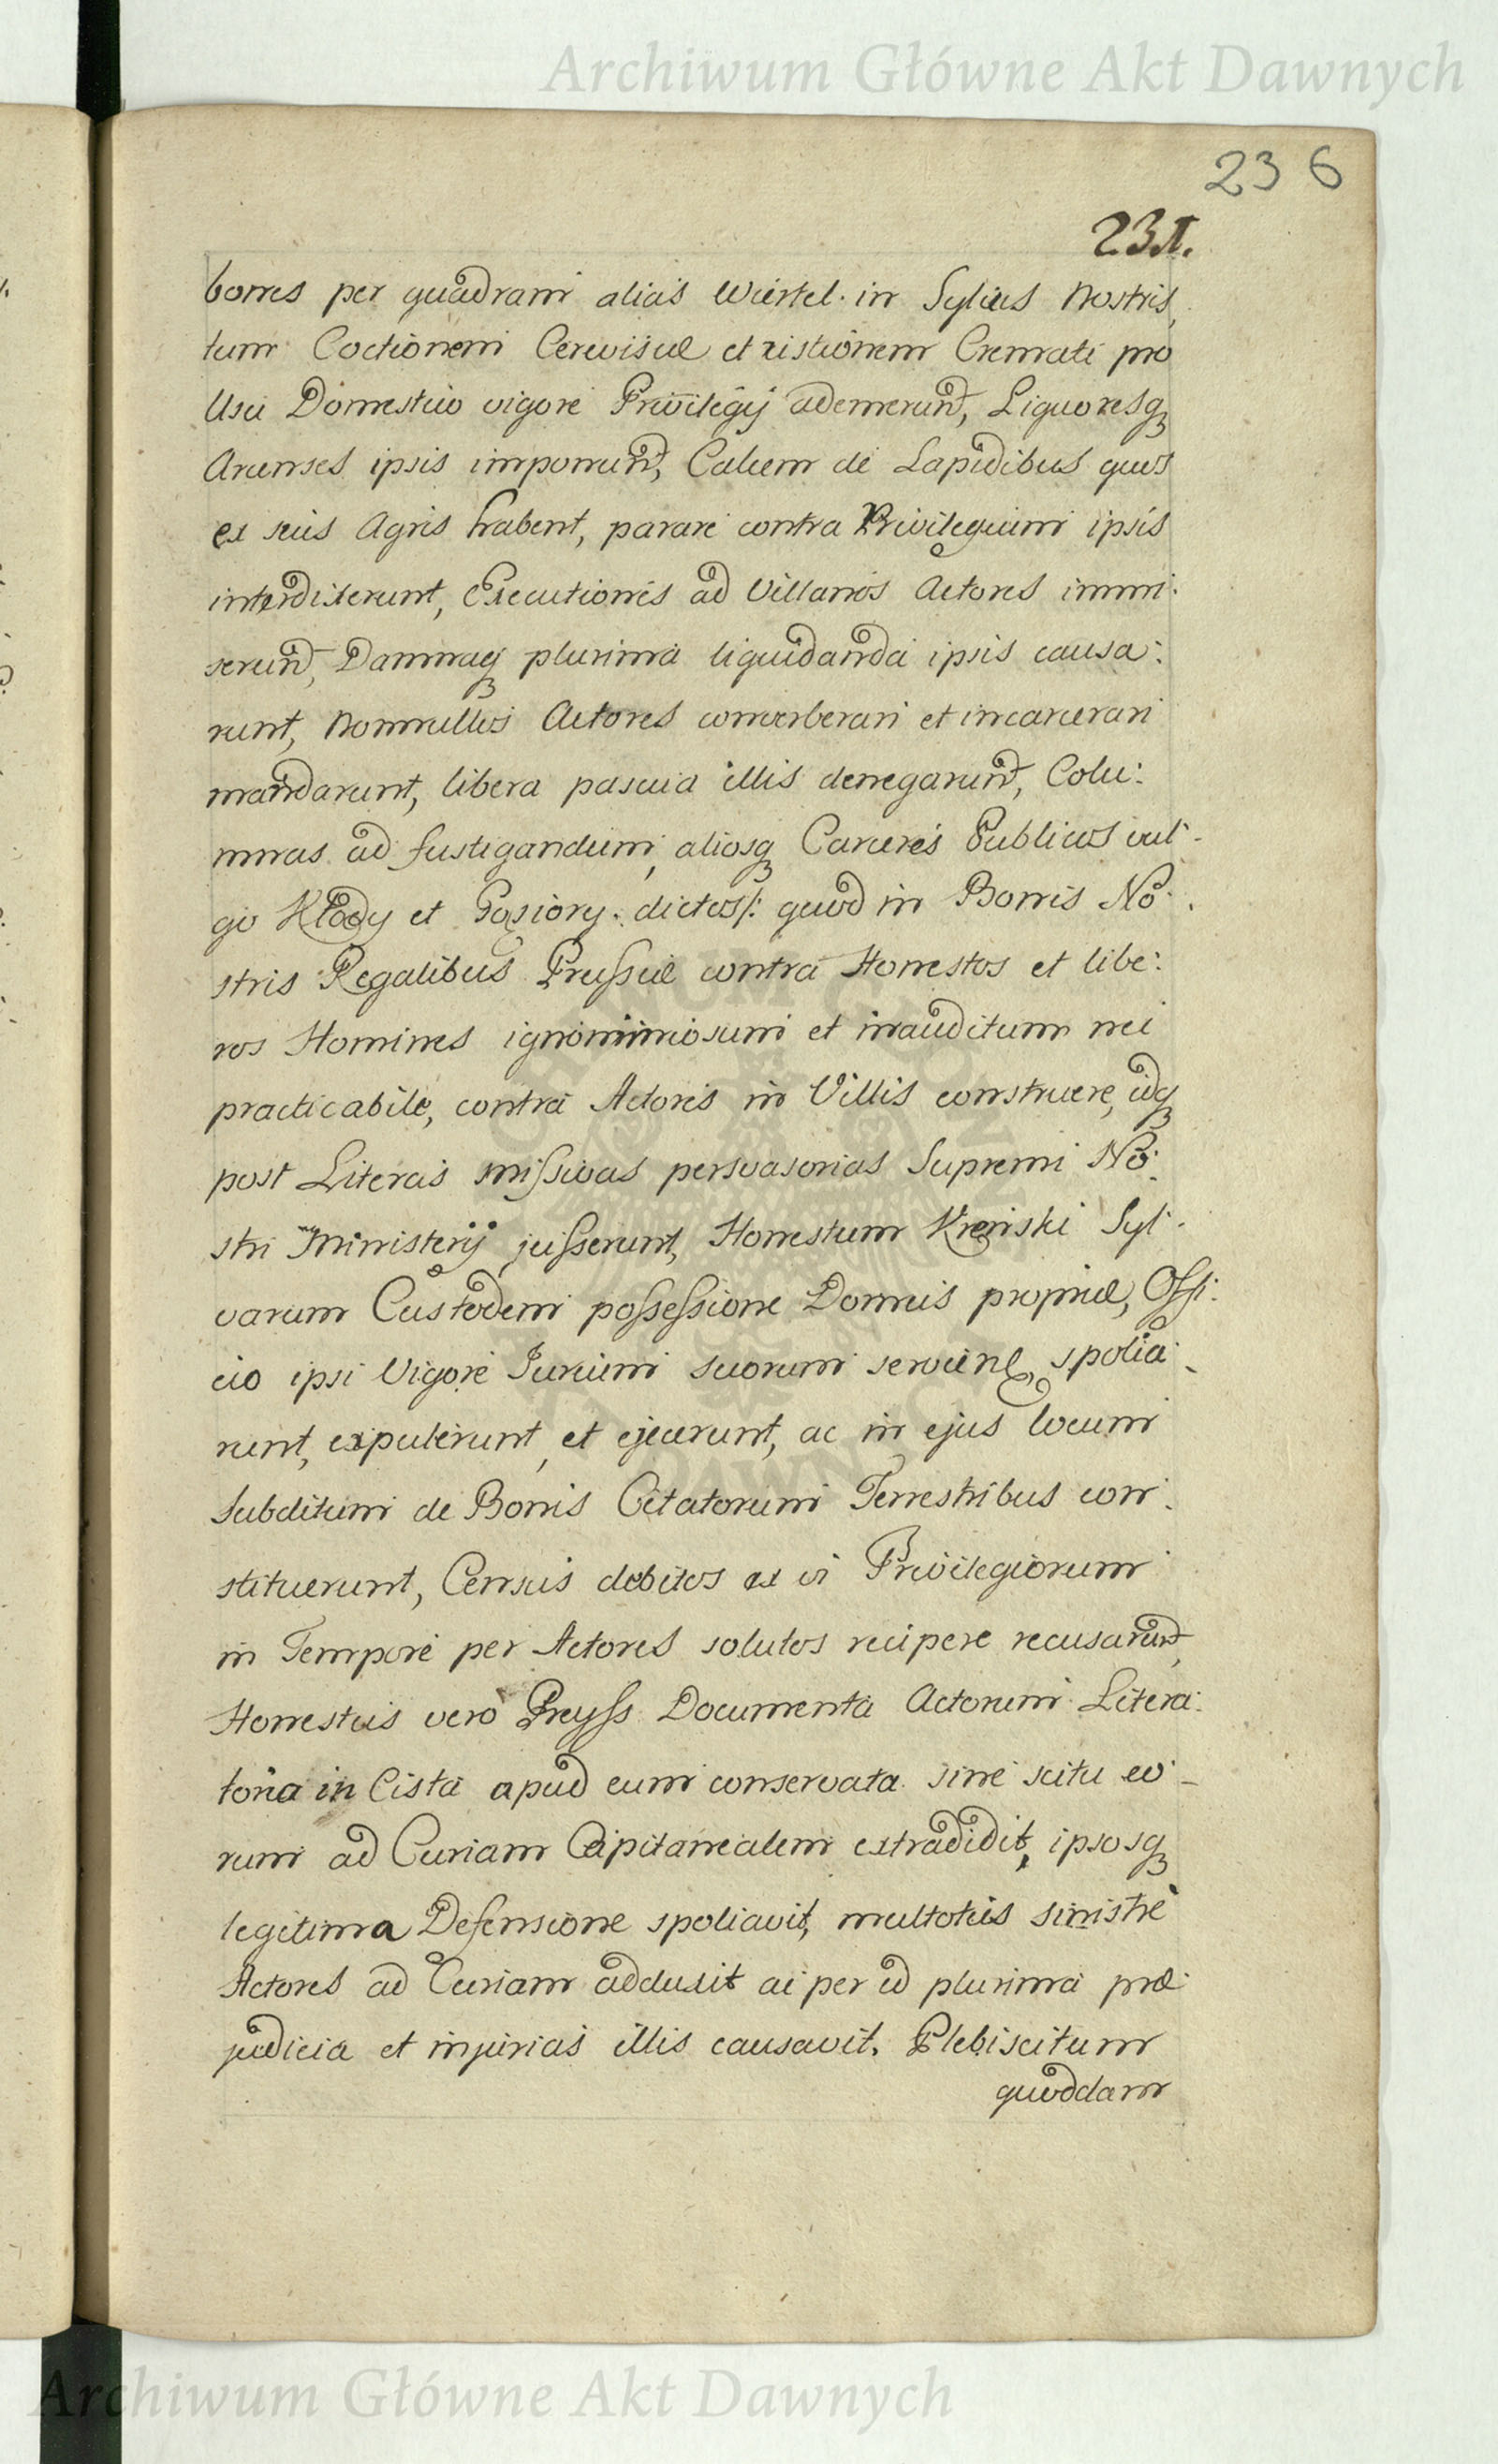 Archiwum Główne Akt Dawnych
236
231.
bores per quadram alias Wiertel. in Sylvis Nostris,
tum Coctionem Cerevisiæ et ustionem Cremati pro
Usu Domestico vigore Privilegij ademerunt, Liquoresq
Arcenses ipsis imponunt, Calcem de Lapidibus quos
ex suis Agris habent, parare contra Privilegium ipsis
interdixerunt, Executiones ad Villanos Actores immi:
serunt, Damnaq plurima liquidanda ipsis causa:
runt, Nonnullos Actores converberari et incarcerari
mandarunt, libera pascua illis denegarunt, Colu:
mnas ad fustigandum, aliosq Carceres Publicos vul-
go Kłody et Gąsiory. dictos/: quod in Bonis No:
stris Regalibus Prussiæ contra Honestos et libe:
ros Homines ignominiosum et inauditum nec
practicabile, contra Actores in Villis construere, idq
post Literas missivas persvasorias Supremi No:
stri Ministerij jusserunt, Honestum Kręński Syl-
varum Custodem possessione Domus propriæ, Offi:
cio ipsi Vigore Jurium suorum servien, spolia-
runt, expulerunt, et ejecerunt, ac in ejus locum
Subditum de Bonis Citatorum Terrestribus con-
stituerunt, Census debitos ex vi Privilegiorum
in Tempore per Actores solutos recipere recusarunt,
Honestus vero Preyss Documenta Actorum Litera:
toria in Cista apud eum conservata sine scitu eo-
rum ad Curiam Capitanealem extradidit, ipsosq
legitima Defensione spoliavit, multoties sinistre
Actores ad Curiam adduxit ac per id plurima præ-
judicia et injurias illis causavit. Plebiscitum
quoddam
Archiwum Główne Akt Dawnych